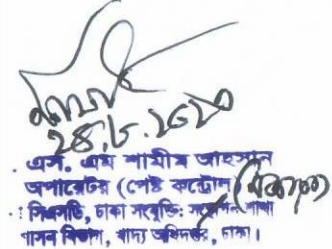 ২৪.৮.২০২০
এস. এম শামীম আহসান
অপারেটর (পেষ্ট কন্ট্রোল)
সিএসডি, ঢাকা সংযুক্তি: সংস্থাপন শাখা
শাসন বিভাগ, খাদ্য অধিদপ্তর, ঢাকা।